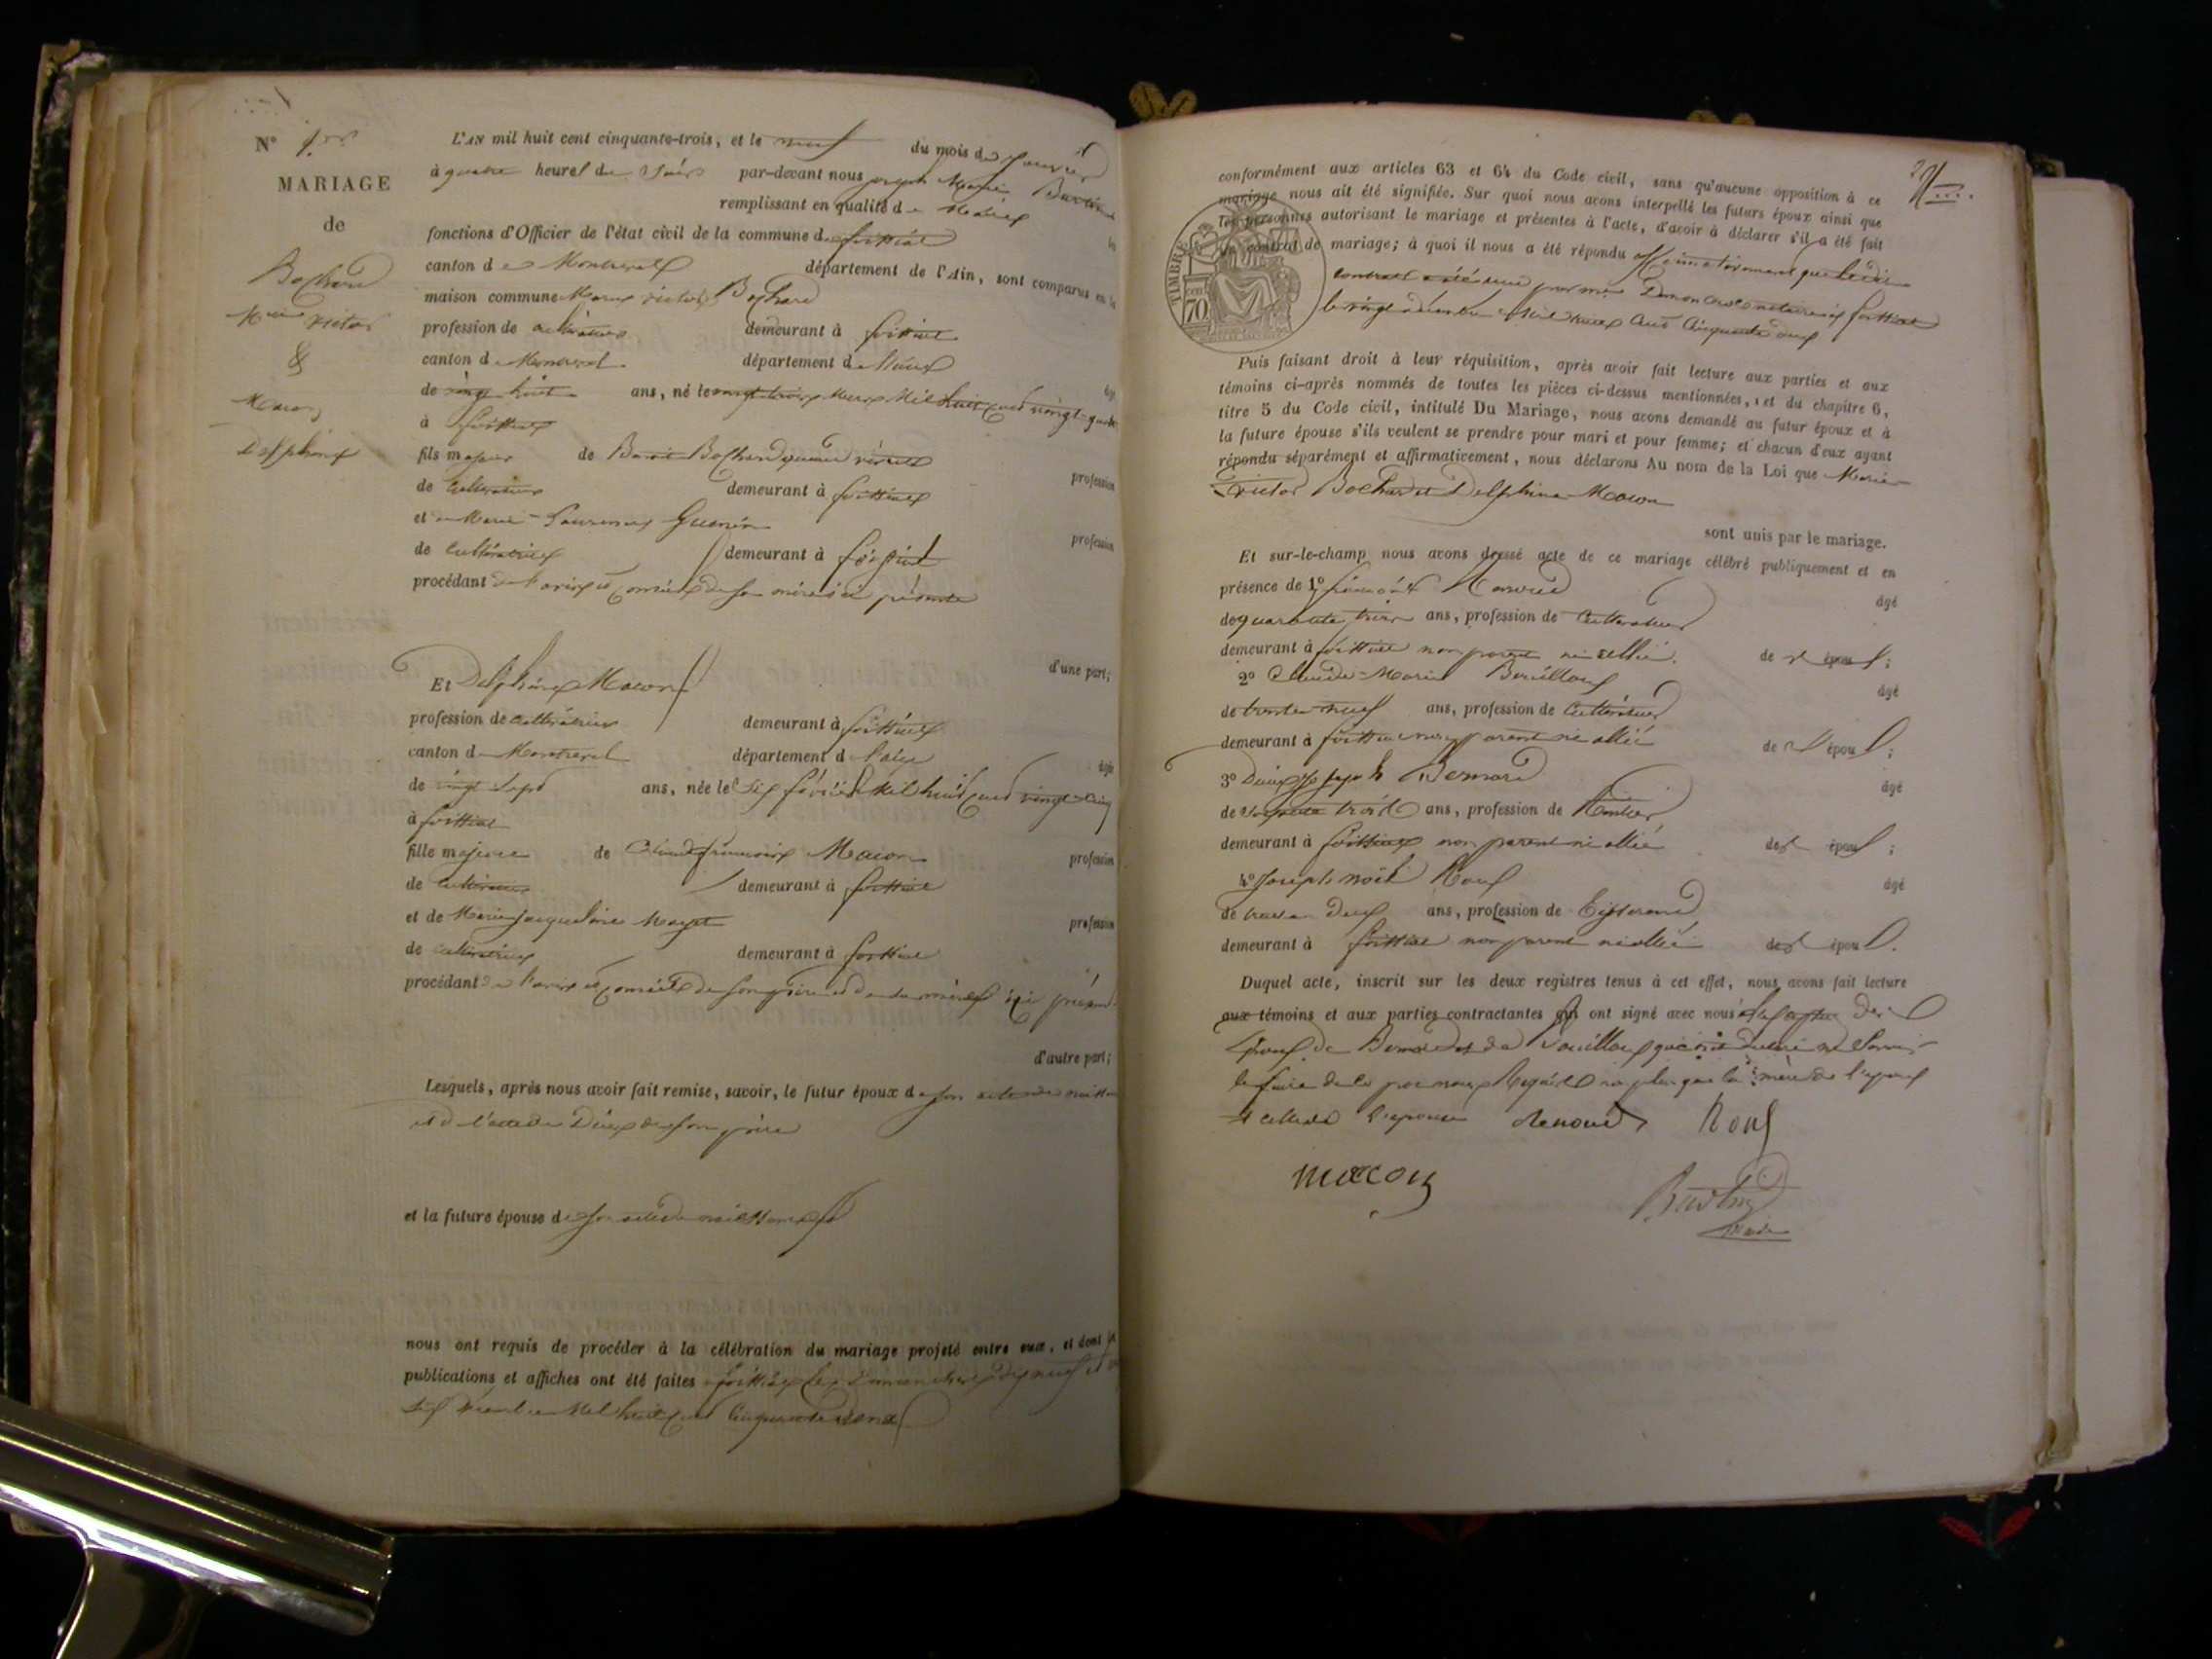 N° 1er
MARIAGE
de
Bochard
Marie victor
&
Macon
Delphine
L'AN mil huit cent cinquante-trois, et le neuf du mois de Janvier
à quatre heures du Soir par-devant nous joseph Marie
remplissant en qualité de Maire les
fonctions d'Officier de l'état civil de la commune de foissiat
canton de Montrevel département de l'Ain, sont comparus en la
maison commune Marie victor Bochard
profession de cultivateur demeurant à foissiat
canton de Montrevel département de l'ain âgé
de vingt huit ans, né le vingt trois Mars Mil huit cent vingt quatre
à foissiat
fils majeur de Benoit Bochard quand vivait profession
de cultivateur demeurant à foissiat
et de Marie Laurence Guerin profession
de cultivatrice demeurant à foissiat
procédant de l'avis et conseil de sa mère ici présente
d'une part;
Et Delphine Macon
profession de cultivatrice demeurant à foissiat
canton de Montrevel département de l'ain âgée
de vingt sept ans, née le Six février Mil huit cent vingt cinq
à foissiat
fille majeure de Claude françois Macon profession
de cultivateur demeurant à foissiat
et de Marie Jacqueline profession
de cultivatrice demeurant à foissiat
procédant de l'avis et conseil de son père et de sa mère ici présents
d'autre part;
Lesquels, après nous avoir fait remise, savoir, le futur époux de son acte de naissance
et de l'acte de Décès de son père
et la future épouse de son acte de naissance
nous ont requis de procéder à la célébration du mariage projeté entre eux, et dont les
publications et affiches ont été faites à foissiat les Dimanches dix neuf et vingt
six Décembre Mil huit cent Cinquante deux
conformément aux articles 63 et 64 du Code civil, sans qu'aucune opposition à ce
mariage nous ait été signifiée. Sur quoi nous avons interpellé les futurs époux ainsi que
les personnes autorisant le mariage et présentes à l'acte, d'avoir à déclarer s'il a été fait
un contrat de mariage; à quoi il nous a été répondu affirmativement que le dit
contrat a été reçu par me notaire à foissiat
le vingt décembre Mil huit Cent Cinquante deux
TIMBRE
70
Puis faisant droit à leur réquisition, après avoir fait lecture aux parties et aux
témoins ci-après nommés de toutes les pièces ci-dessus mentionnées, et du chapitre 6,
titre 5 du Code civil, intitulé Du Mariage, nous avons demandé au futur époux et à
la future épouse s'ils veulent se prendre pour mari et pour femme; et chacun d'eux ayant
répondu séparément et affirmativement, nous déclarons Au nom de la Loi que Marie
victor Bochard et Delphine Macon
sont unis par le mariage.
Et sur-le-champ nous avons dressé acte de ce mariage célébré publiquement et en
présence de 1° âgé
de quarante trois ans, profession de Cultivateur
demeurant à foissiat non parent ni allié de s époux;
2° Claude Marie âgé
de trente neuf ans, profession de Cultivateur
demeurant à foissiat non parent ni allié des époux;
3° Denis Joseph Bernard âgé
de soixante trois ans, profession de Rentier
demeurant à foissiat non parent ni allié des époux;
4° Joseph Noël Roux âgé
de trente Deux ans, profession de Tisserand
demeurant à foissiat non parent ni allié des époux.
Duquel acte, inscrit sur les deux registres tenus à cet effet, nous avons fait lecture
aux témoins et aux parties contractantes qui ont signé avec nous à l'exception des
époux de Bernard et de qui ont déclaré ne Savoir
le faire de ce par nous Requis non plus que la mère de l'époux
et celle de l'épouse Renoud Roux
macon
maire